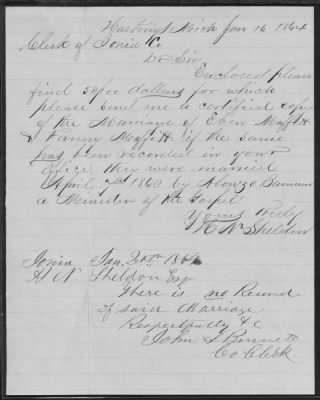 Hastings Mich Jan 16 1864
Clerk of Ionia Co.
Dr Sir
Enclosed please
find 50/100 dollars for which
please send me a certified copy
of the Marriage of Eben Moffitt
& Fanny Moffitt if the same
has been recorded in your
office. They were married
April 7th 1860 by Alonzo
a Minister of the Gospel
Yours Truly
H N Sheldon
Ionia Jan 20th 1864
H N Sheldon Esq
There is no Record
of said Marriage
Respectfully &c
John Bennett
Co Clerk